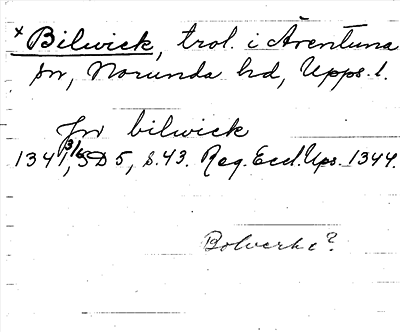 × Bilwick, trol. i Ärentuna
sn, Norunda hd, Upps. l.
Jn bilwick
1341 13/6, SD 5, s. 43. Reg. Eccl. Ups. 1344.
Bolverk i?